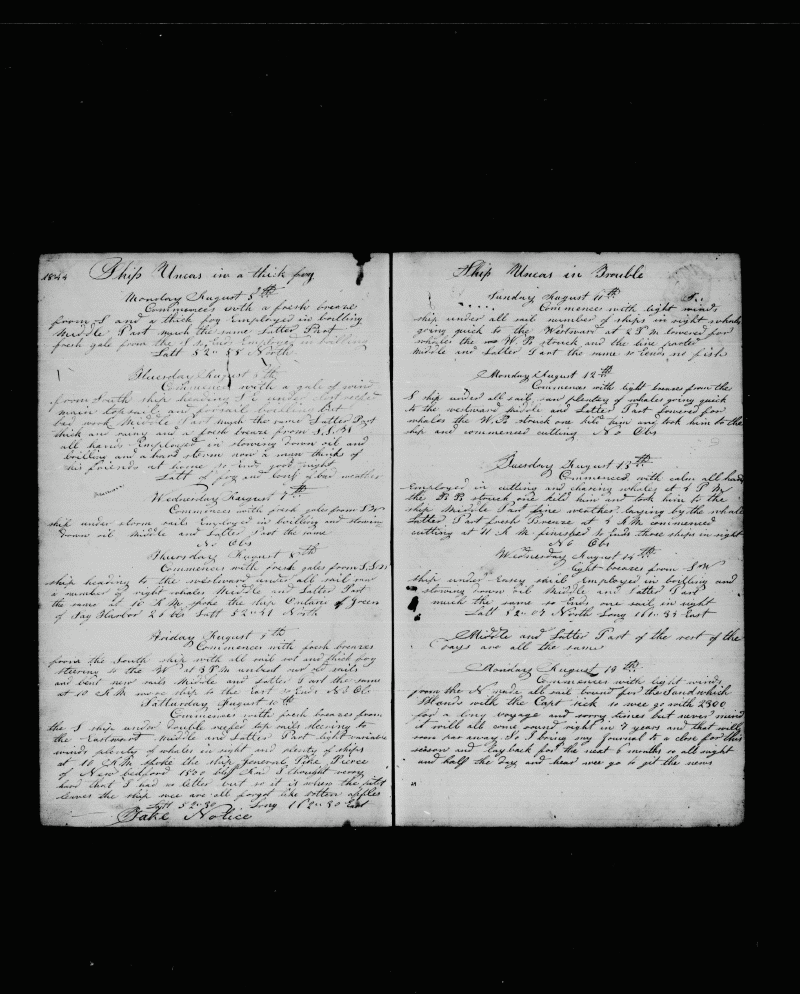 1844 Ship Uncas in a thick fog
Monday August 5th
Commences with a fresh breaze
from S and a thick fog Employed in boilling
Middle Part much the same Latter Part
fresh gale from the S so Ends Employed in boilling
Latt 52" 58 North
Thuesday August 6th
Commences with a gale of wind
from South ship heading
main topsail an forsail boilling but
bad work Middle Part much the same Latter Part
thick and rainy and a fresh breaze from S.S.W
all hands Employed in stowing down oil and
boilling and a hard storm now a man thinks of
his friends at home so End good night
Latt of fog and Long of bad weather
Wednesday August 7th
Commences with fresh gales from SW
ship under storm sail Employed in boilling and stowing
down oil Middle and Latter Part the same
No Obs
Thursday August 8th
Commences with fresh gales from S.S.W
ship heading to the westward under all sail saw
a number of right whales Middle and Latter Part
the same at 10 A.M. spoke the ship Ontario of Green
of Sag Harbor Latt 52" 51 North
Friday August 9th
Commences with fresh breazes
from the South ship with all sail set and thick fog
steering to the W at 3 P M unbent our old sails
and bent new sails Middle and Latter Part the same
at 10 A M wore ship to the East so Ends No Obs
Satturday August 10th
Commences with fresh breazes from
the S ship under double reefed top sails steering to
the Eastward Middle and Latter Part light variable
winds plenty of whales in sight and plenty of ships
at 10 A M spoke the ship Jeneral Pike Pierce
of New bedford 1850 bbls And I thought verry
hard that I had no letter but so it is when the pilot
leaves the ship wee are all forgot like rotten apples
Latt 52"30 Long 162"30 East
Take Notice
Ship Uncas in Trouble
Sunday August 11th
Commences with light winds
ship under all sail number of ships in sight whales
going quick to the Westward at 2 P M lowered for
whales the W.B struck and the line parted
Middle and Latter Part the same so Ends no fish
Monday August 12th
Commences with light breazes from the
S ship under all sail saw plenty of whales going quick
to the westward Middle and Latter Part lowered for
whales the W.B struck one kild him and took him to the
ship and commenced cutting No Obs
Tuesday August 13th
Commenced with calm all hands
Employed in cutting and chasing whales at 4 P M
the B.B struck one kild him and took him to the
ship Middle Part fine weather laying by the whale
Latter Part fresh Breeze at 4 A M commenced
cutting at 11 A M finished so Ends three ships in sight
No Obs
Wednesday August 14th
light breazes from SW
ship under Easey sail Employed in boilling and
stowing down oil Middle and Latter Part
much the same so Ends one sail in sight
Latt 52" 07 North Long 161" 33 East
Middle and Latter Part of the rest of the
days are all the same
Monday August 19th
Commences with light winds
from the N made all sail bound for the Sandwhich
Islands with the Capt sick so wee go with 2800
for a long voyage and sorry times but never mind
it will all come round right in 7 years and that will
soon pas away. So I bring my Journal to a close for this
season and lay back for the next 6 months so all night
and half the day and hear wee go to git the news